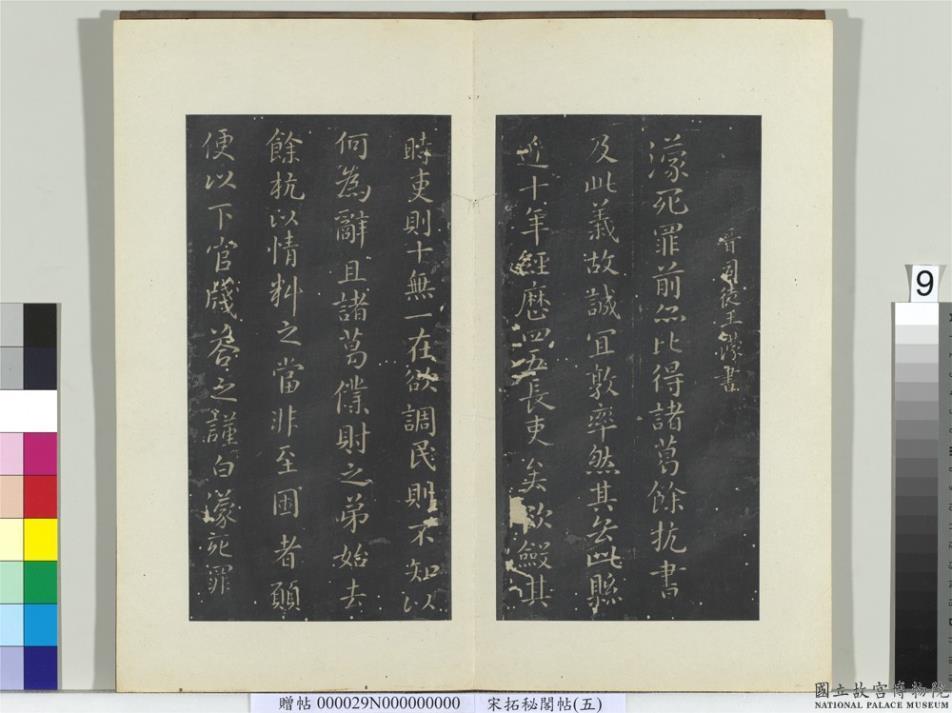 晉司徒王濛書
濛死罪前亦比得諸葛餘杭書
及此義故誠宜敦率然其去此縣
近十年經歷四五長吏矣欲斂其
時吏則十無一在欲調民則不知以
何為辭且諸葛僕財之弟始去
餘杭以情料之當非至困者願
便以下官牋答之謹白濛死罪
9
贈帖 000029N000000000 宋拓秘閣帖(五)
國立故宮博物院
NATIONAL PALACE MUSEUM